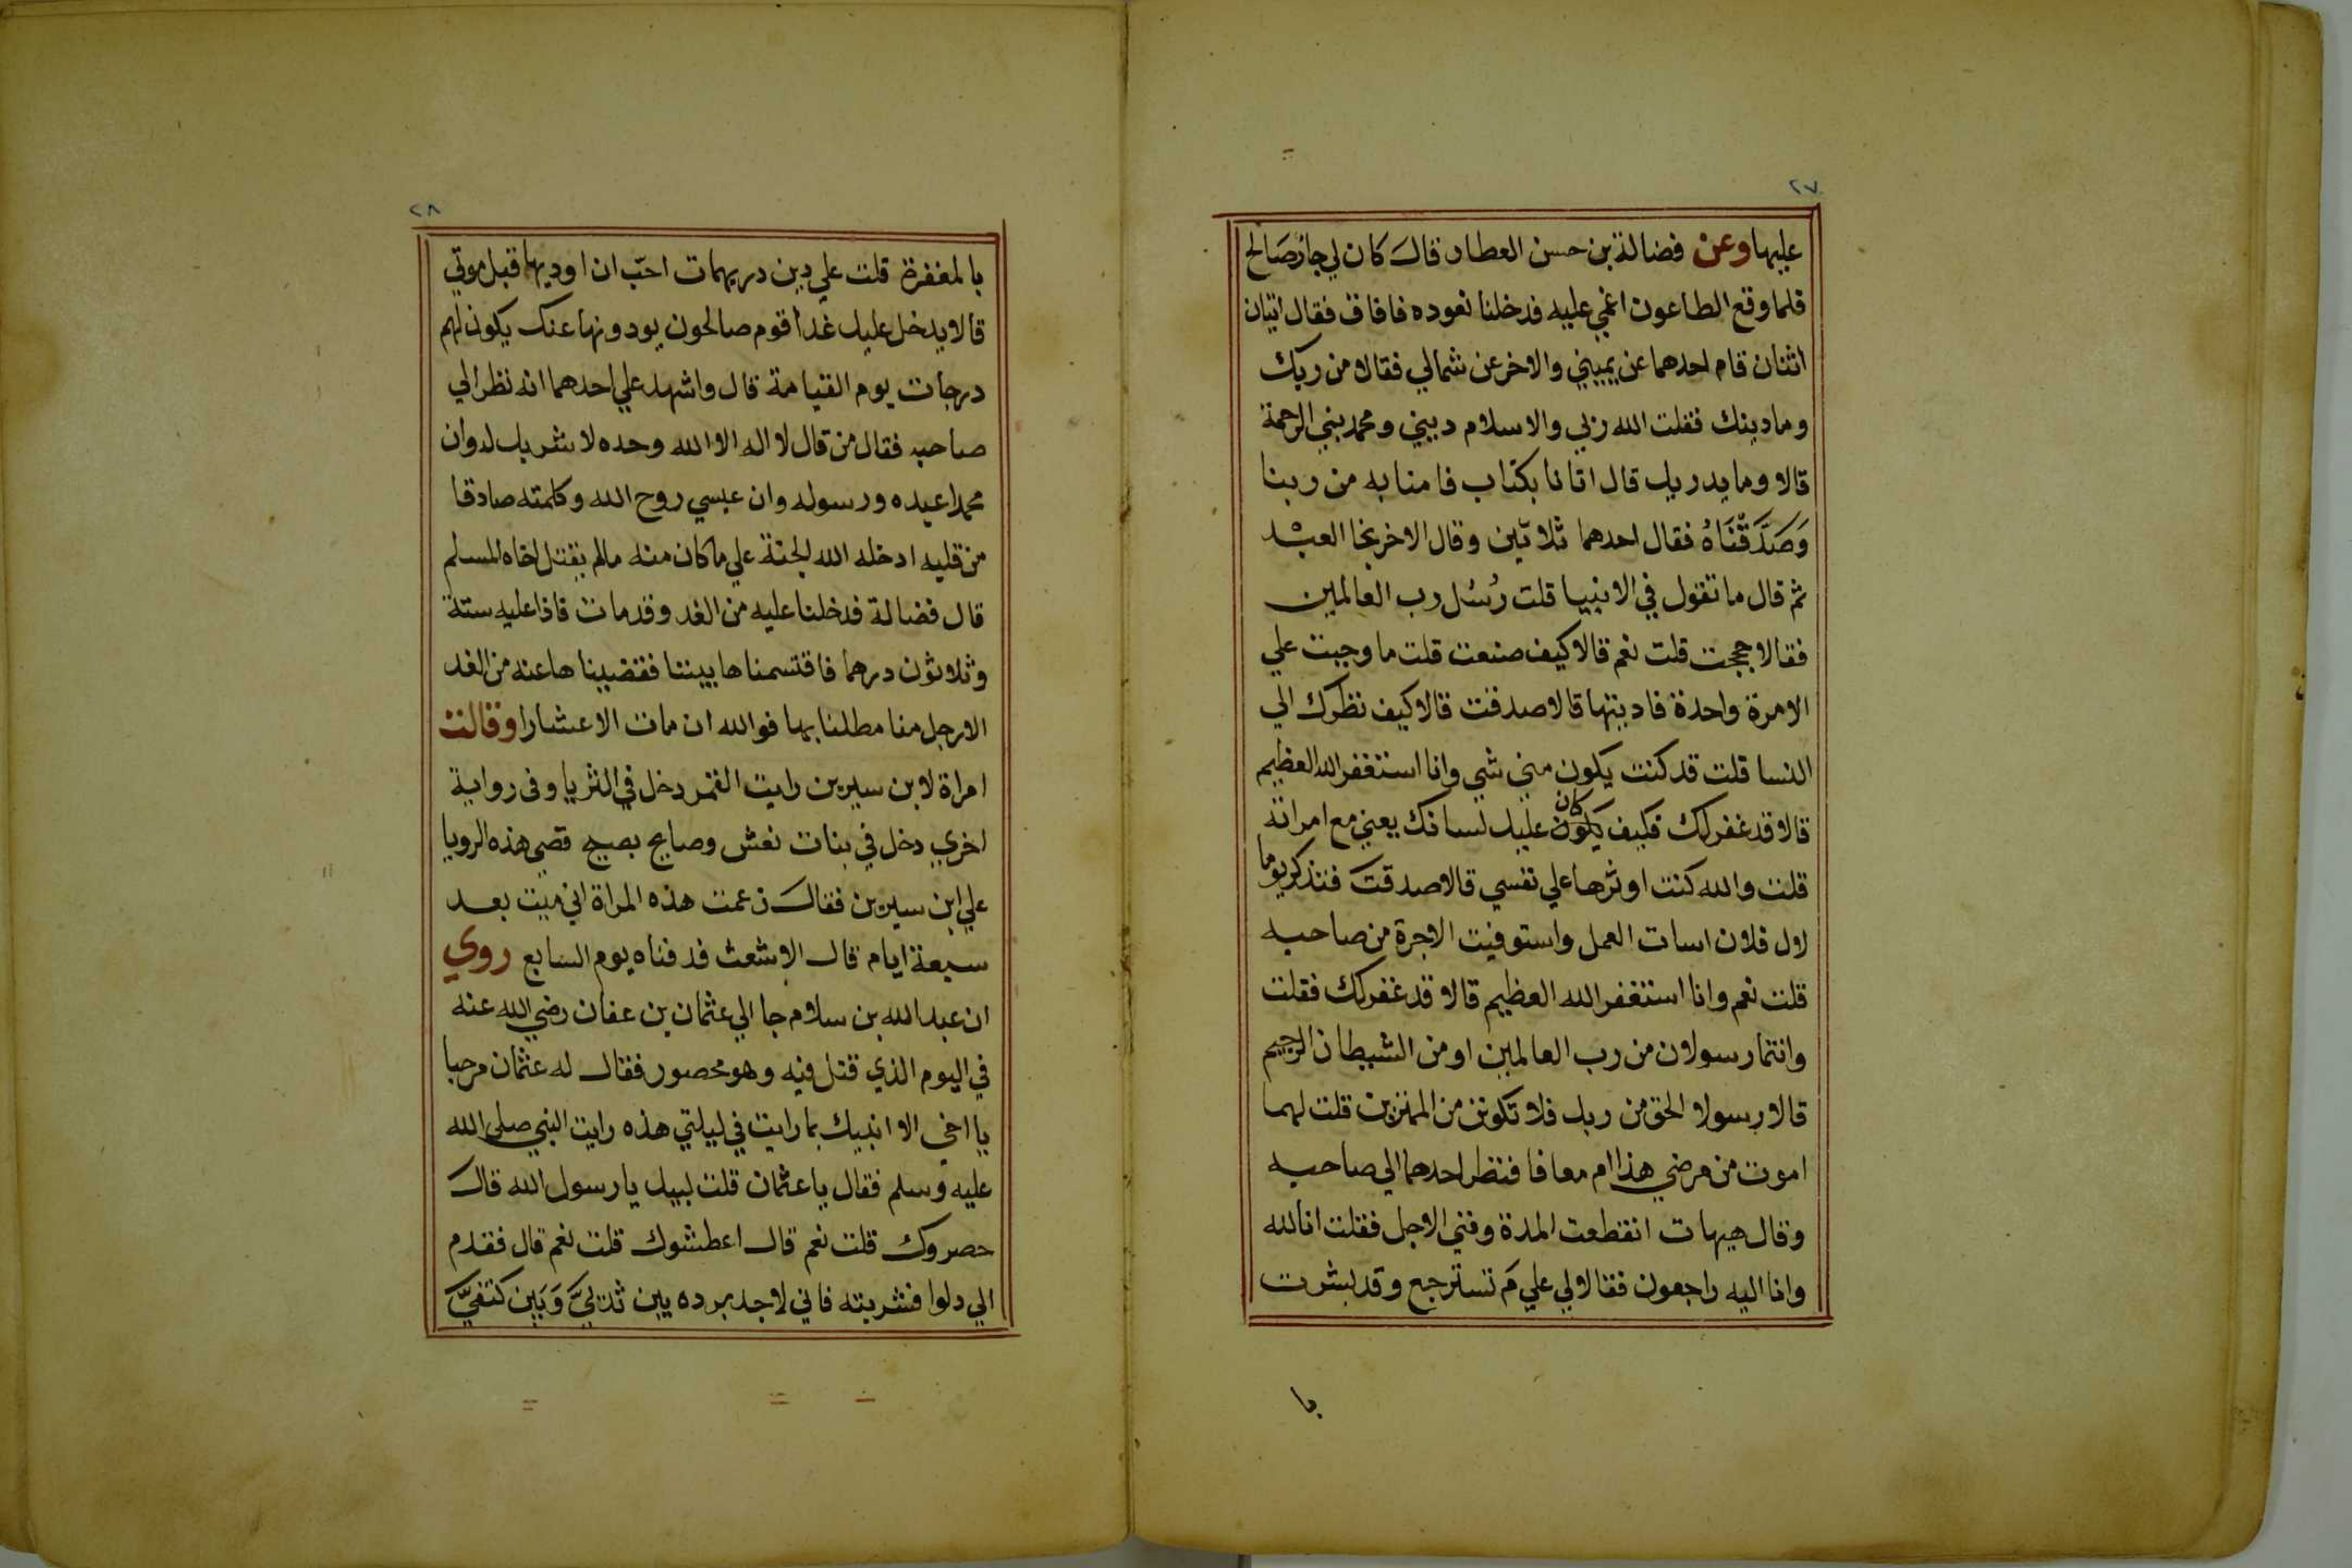 ٢٧
عليها وعن فضالة بن حسن العطار قال كان لي جار صَالح
فلما وقع الطاعون اغمي عليه فدخلنا نعوده فافاق فقال اتيان
اثنان قام احدهما عن يميني والاخر عن شمالي فقالا من ربك
وما دينك فقلت الله ربي والاسلام ديني ومحمد نبي الرحمة
قالا وما يدريك قال اتانا بكتاب فامنا به من ربنا
وَصَدَّقْنَاهُ فقال احدهما ثلاثين وقال الاخر نجا العبْد
ثم قال ما تقول في الانبيا قلت رُسُل رب العالمين
فقالا حججت قلت نعم قالا كيف صنعت قلت ما وجبت علي
الا مرة واحدة فاديتها قالا صدقت قالا كيف نظرك الي
النسا قلت قد كنت يكون مني شي وانا استغفر الله العظيم
قالا قد غفر لك فكيف يكون كان عليك لسانك يعني مع امراته
قلت والله كنت اوثرها علي نفسي قالا صدقت فتذكر يوما
اول فلان اسات العمل واستوفيت الاجرة من صاحبه
قلت نعم وانا استغفر الله العظيم قالا قد غفر لك فقلت
وانتما رسولان من رب العالمين او من الشيطان الرجيم
قالا رسولا الحق من ربك فلا تكونن من الممترين قلت لهما
اموت من مرضي هذا ام معافا فنظر احدهما الي صاحبه
وقال هيهات انقطعت المدة وفني الاجل فقلت انا لله
وانا اليه راجعون فقالا لي علي مَ تسترجع وقد بشرت
با
٢٨
بالمغفرة قلت علي دين دريهمات احبّ ان اوديها قبل موتي
قالا يدخل عليك غداً قوم صالحون يودونها عنك يكون لهم
درجات يوم القيامة قال واشهد علي احدهما انه نظر الي
صاحبه فقال من قال لا اله الا الله وحده لا شريك له وان
محمدا عبده ورسوله وان عيسي روح الله وكلمته صادقا
من قلبه ادخله الله الجنة علي ما كان منه مالم يقتل اخاه المسلم
قال فضالة فدخلنا عليه من الغد وقد مات فاذا عليه ستة
وثلاثون درهما فاقتسمناها بيننا فقضيناها عنه من الغد
الا رجل منا مطلنا بها فوالله ان مات الا عشارا وقالت
امراة لابن سيرين رايت القمر دخل في الثريا وفى رواية
اخري دخل في بنات نعش وصايح يصيح قصي هذه الرويا
علي ابن سيرين فقال زعمت هذه المراة اني ميت بعد
سبعة ايام قال الاشعث فدفناه يوم السابع روي
ان عبد الله بن سلام جا الي عثمان بن عفان رضي الله عنه
في اليوم الذي قتل فيه وهو محصور فقال له عثمان مرحبا
يا اخى الا انبيك بما رايت في ليلتي هذه رايت النبي صلى الله
عليه وسلم فقال يا عثمان قلت لبيك يا رسول الله قال
حصروك قلت نعم قال اعطشوك قلت نعم قال فقدم
الي دلوا فشربته فاني لاجد برده بين ثديَيَّ وَبَين كتفيَّ